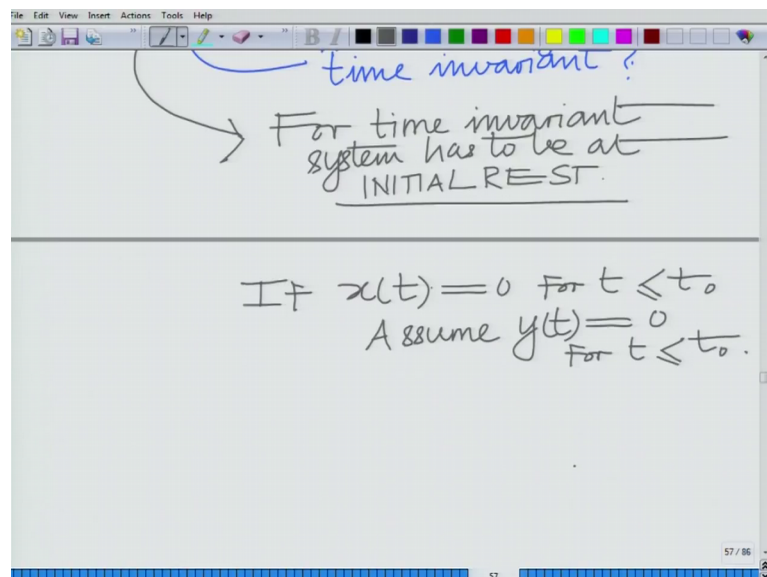 File Edit View Insert Actions Tools Help
B I
time invariant?
For time invariant
system has to be at
INITIAL REST.
If x(t) = 0 For t ≤ t₀
Assume y(t) = 0
For t ≤ t₀.
57 / 86
57